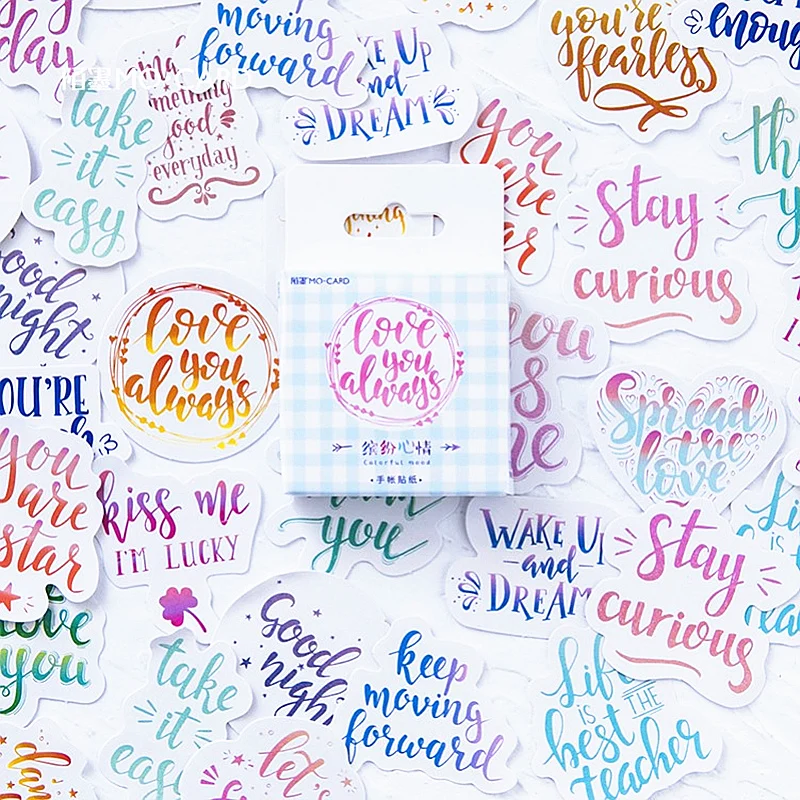 day
moving
forward
WAKE UP
and
DREAM
you're
fearless
enough
陌墨MO·CARD
take
it
easy
something
good
everyday
you
are
Stay
curious
good
night
陌墨MO-CARD
love
you
always
love
you
always
缤纷心情
Colorful mood
·手帐贴纸·
YOU'RE
you
Spread
the
love
you
are
star
kiss me
I'M LUCKY
you
WAKE UP
and
DREAM
Stay
curious
love
you
Good
night
take
it
easy
keep
moving
forward
Life
IS THE
best
teacher
let's